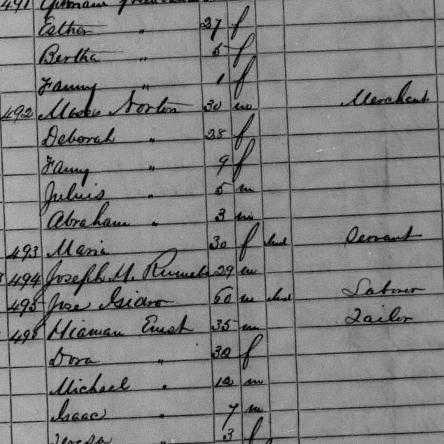 491
Esther " 27 f
Bertha " 5 f
Fanny " 1 f
492 Norton 30 m Merchant
Deborah " 28 f
Fanny " 9 f
Julius " 5 m
Abraham " 3 m
493 Maria 30 f Ind Servant
494 Joseph M. 29 m
495 Jose Isidro 60 m Ind Laborer
496 Hiaman Ernst 35 m Tailor
Dora " 30 f
Michael " 12 m
Isaac " 7 m
Teresa " 3 f